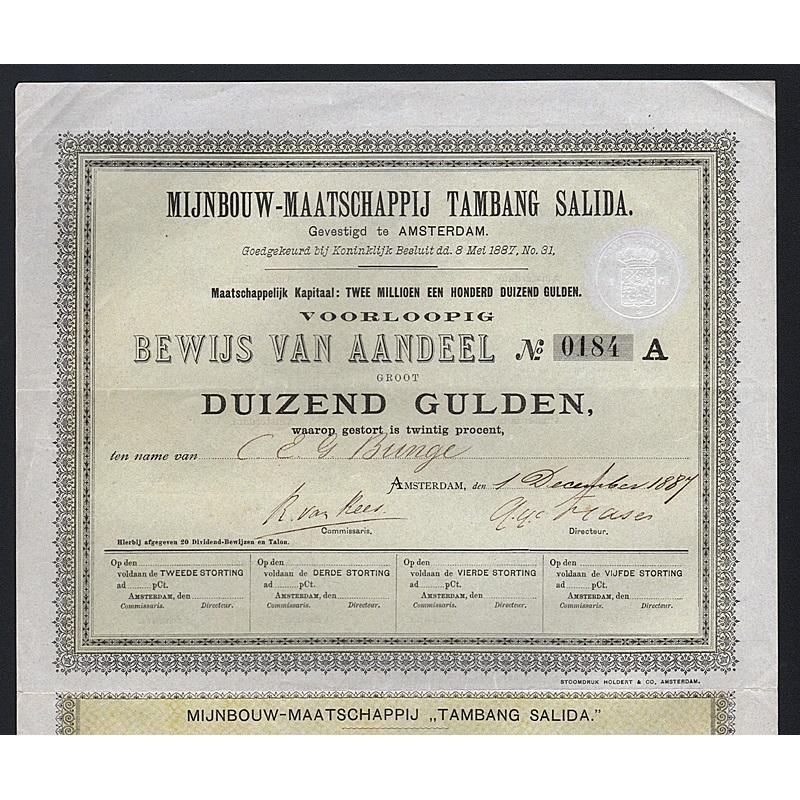 MIJNBOUW-MAATSCHAPPIJ TAMBANG SALIDA.
Gevestigd te AMSTERDAM.
Goedgekeurd bij Koninklijk Besluit dd. 8 Mei 1887, No. 31,
Maatschappelijk Kapitaal: TWEE MILLIOEN EEN HONDERD DUIZEND GULDEN.
VOORLOOPIG
BEWIJS VAN AANDEEL No 0184 A
GROOT
DUIZEND GULDEN,
waarop gestort is twintig procent,
ten name van C E G Bunge
AMSTERDAM, den 1 December 1887
R. van Rees
Commissaris. Directeur.
Hierbij afgegeven 20 Dividend-Bewijzen en Talon.
Op den
voldaan de TWEEDE STORTING
ad pCt.
AMSTERDAM, den
Commissaris. Directeur.
Op den
voldaan de DERDE STORTING
ad pCt.
AMSTERDAM, den
Commissaris. Directeur.
Op den
voldaan de VIERDE STORTING
ad pCt.
AMSTERDAM, den
Commissaris. Directeur.
Op den
voldaan de VIJFDE STORTING
ad pCt.
AMSTERDAM, den
Commissaris. Directeur.
STOOMDRUK HOLDERT & CO, AMSTERDAM.
MIJNBOUW-MAATSCHAPPIJ „TAMBANG SALIDA."